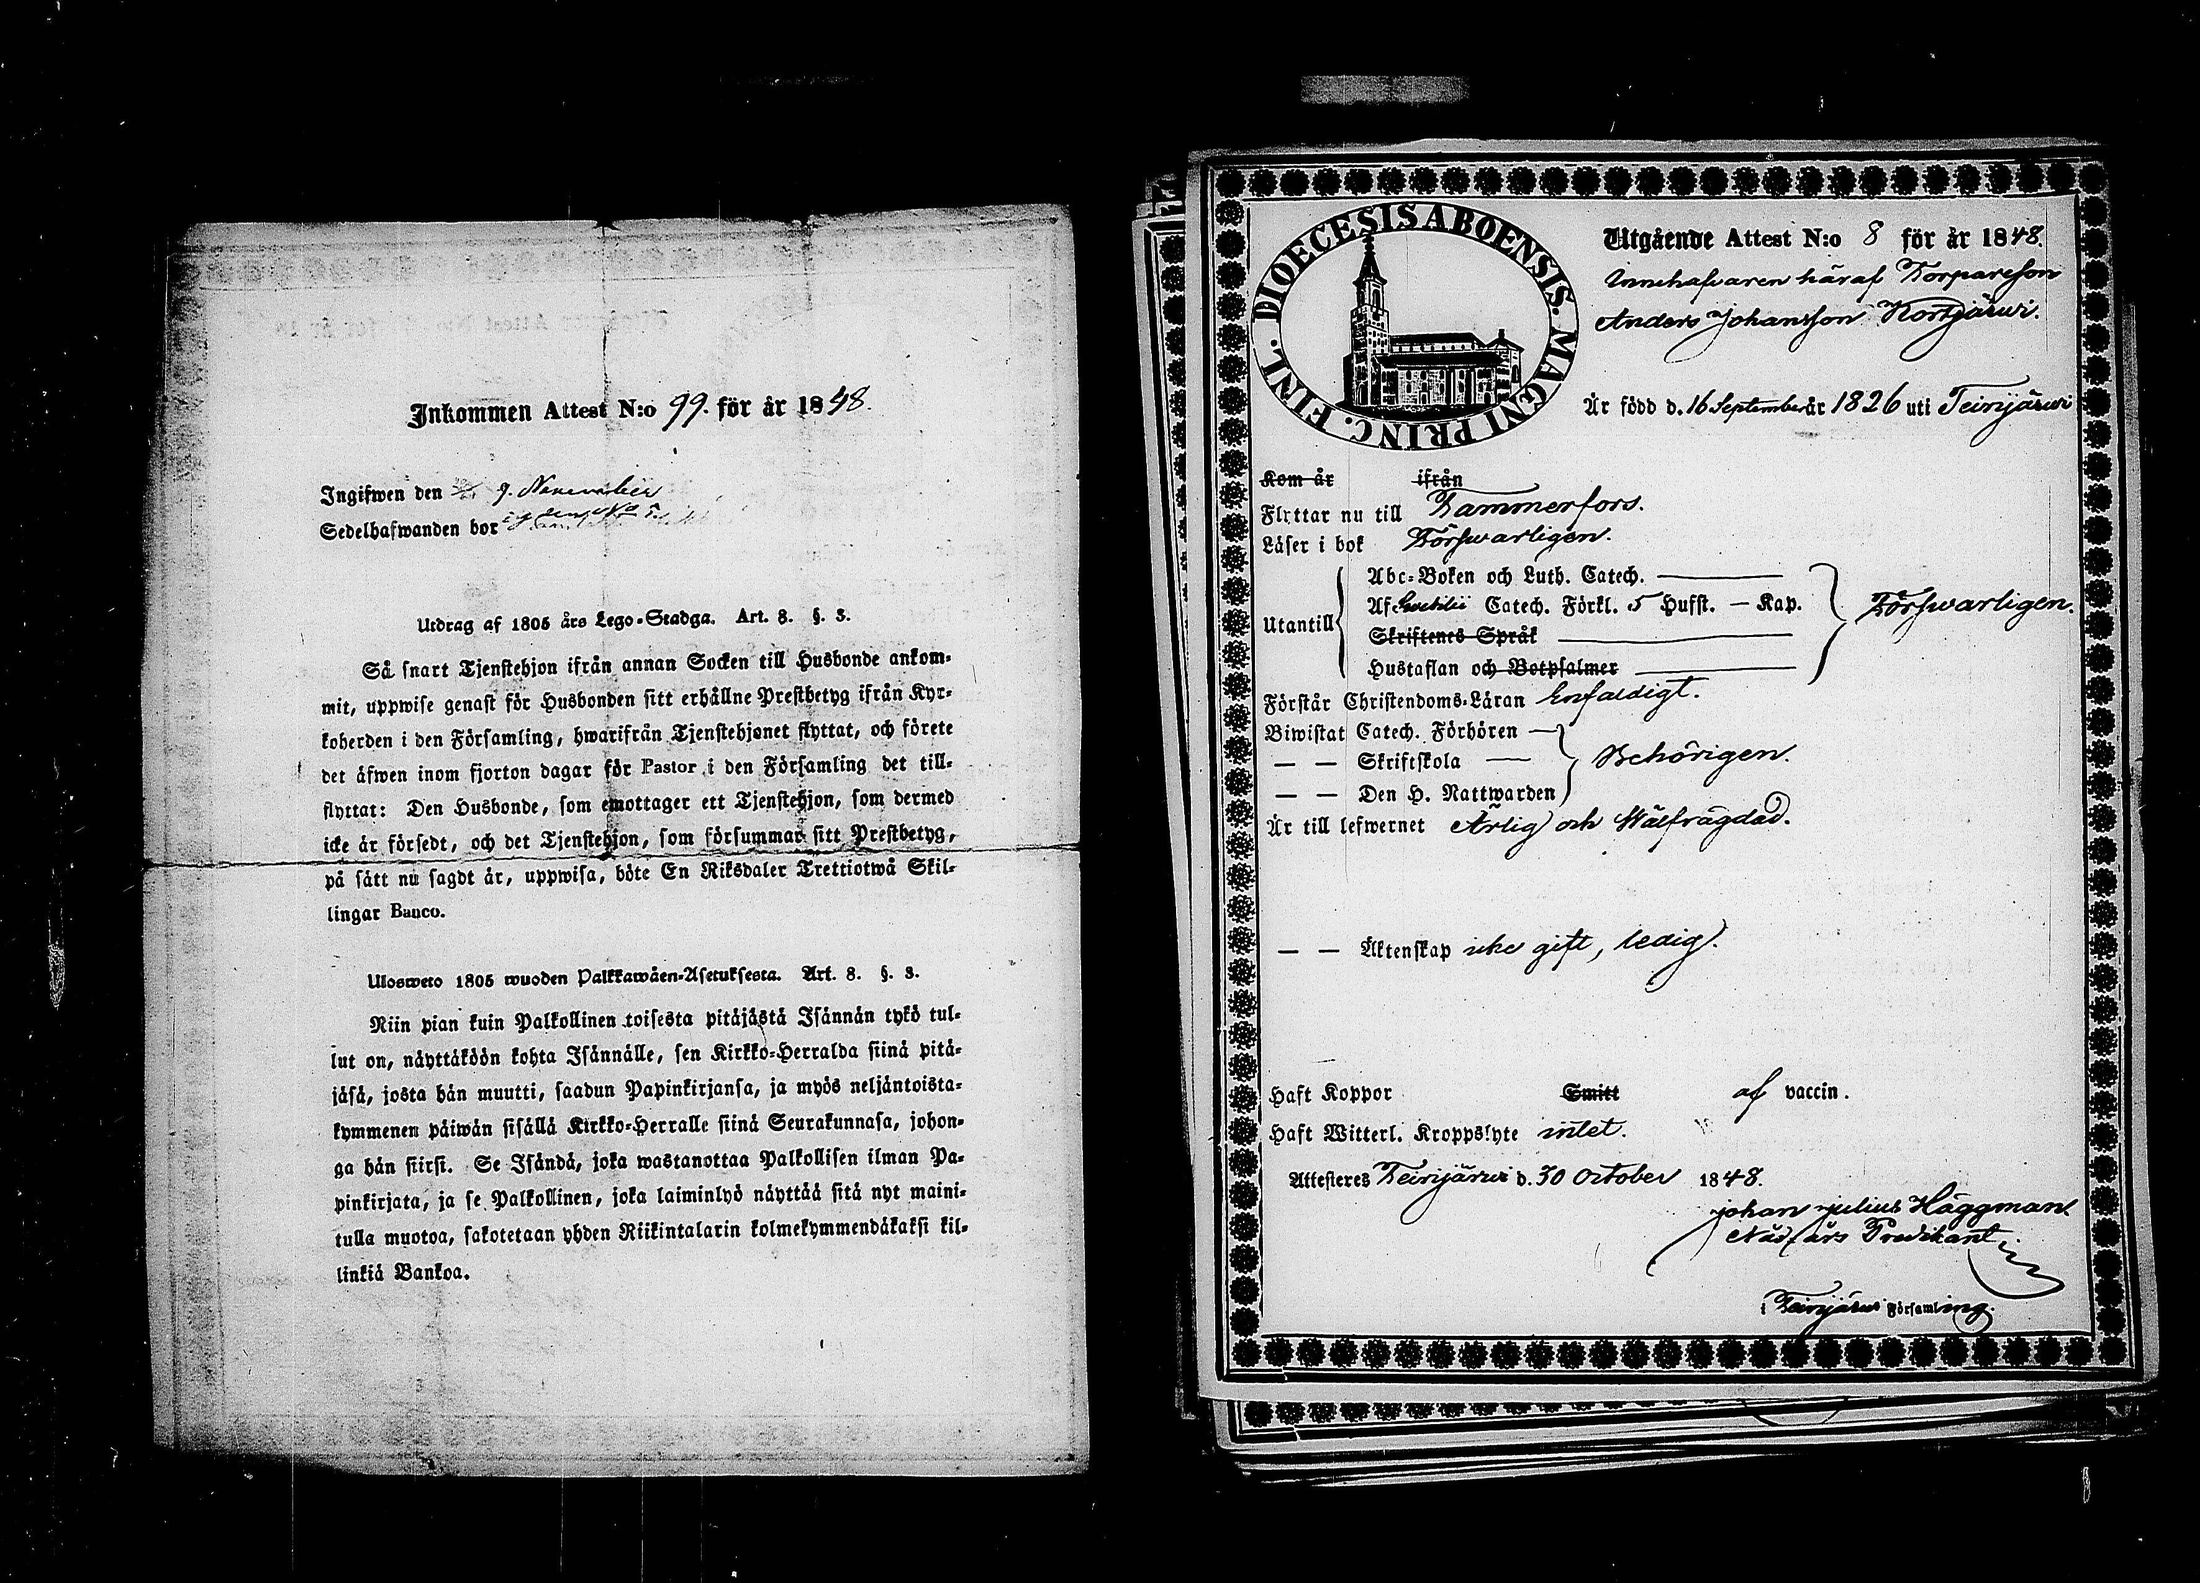 Inkommen Attest N:o 99. för år 1848.
Ingifwen den 9. November
Sedelhafwanden bor
Utdrag af 1805 års Lego-Stadga. Art. 8. §. 3.
Så snart Tjenstehjon ifrån annan Socken till Husbonde ankom-
mit, uppwise genast för Husbonden sitt erhållne Prestbetyg ifrån Kyr-
koherden i den Församling, hwarifrån Tjenstehjonet flyttat, och förete
det äfwen inom fjorton dagar för Pastor i den Församling det till-
flyttat: Den Husbonde, som emottager ett Tjenstehjon, som dermed
icke är försedt, och det Tjenstehjon, som försummar sitt Prestbetyg,
på sätt nu sagdt är, uppwisa, böte En Riksdaler Trettiotwå Skil-
lingar Banco.
Ulosweto 1805 wuoden Palkkawäen-Asetuksesta. Art. 8. §. 3.
Niin pian kuin Palkollinen toisesta pitäjästä Isännän tykö tul-
lut on, näyttäköön kohta Isännälle, sen Kirkko-Herralda siinä pitä-
jäsä, josta hän muutti, saadun Papinkirjansa, ja myös neljäntoista-
kymmenen päiwän sisällä Kirkko-Herralle siinä Seurakunnasa, johon-
ga hän siirsi. Se Isändä, joka wastanottaa Palkollisen ilman Pa-
pinkirjata, ja se Palkollinen, joka laiminlyö näyttää sitä nyt maini-
tulla muotoa, sakotetaan yhden Riikintalarin kolmekymmendäkaksi kil-
linkiä Bankoa.
DIOECESIS ABOENSIS. MAGNI PRINC. FINL.
Utgående Attest N:o 8 för år 1848.
Innehafvaren häraf Torpareson
Anders Johansson Kortjärwi.
Är född d. 16 September år 1826 uti Teirijärwi
Kom år ifrån
Flyttar nu till Tammerfors.
Läser i bok Försvarligen.
Utantill
Abc-Boken och Luth. Catech.
Af Svebilii Catech. Förkl. 5 Hufst. — Kap.
Skriftenes Språk
Hustaflan och Botpsalmer
Försvarligen.
Förstår Christendoms-Läran Enfaldigt.
Biwistat Catech. Förhören —
— — Skriftskola —
— — Den H. Nattwarden
Behörigen.
Är till lefwernet Ärlig och Wälfrägdad.
— — Äktenskap icke gift, ledig.
Haft Koppor Smitt af vaccin.
Haft Witterl. Kroppslyte intet.
Attesteres Teirijärwi d. 30 October 1848.
Johan Julius Häggman.
Nådårs Predikant
i Teirijärwi Församling.